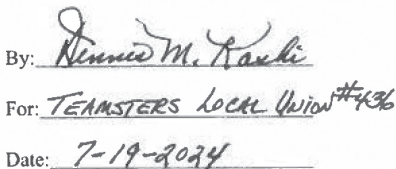 By: Dennis M. Kashi
For: TEAMSTERS LOCAL UNION #436
Date: 7-19-2024